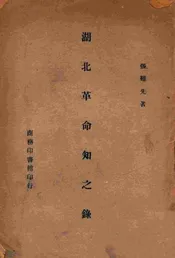 張難先著
湖北革命知之錄
商務印書館印行